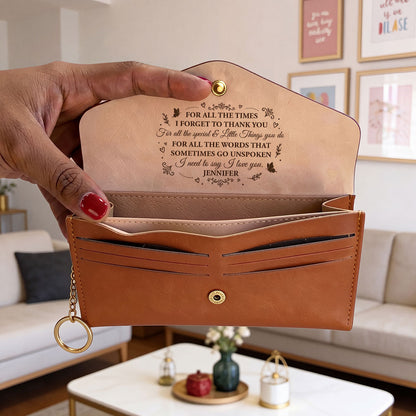 FOR ALL THE TIMES
I FORGET TO THANK YOU
For all the special & Little Things you do
FOR ALL THE WORDS THAT
SOMETIMES GO UNSPOKEN
I need to say I love you,
JENNIFER